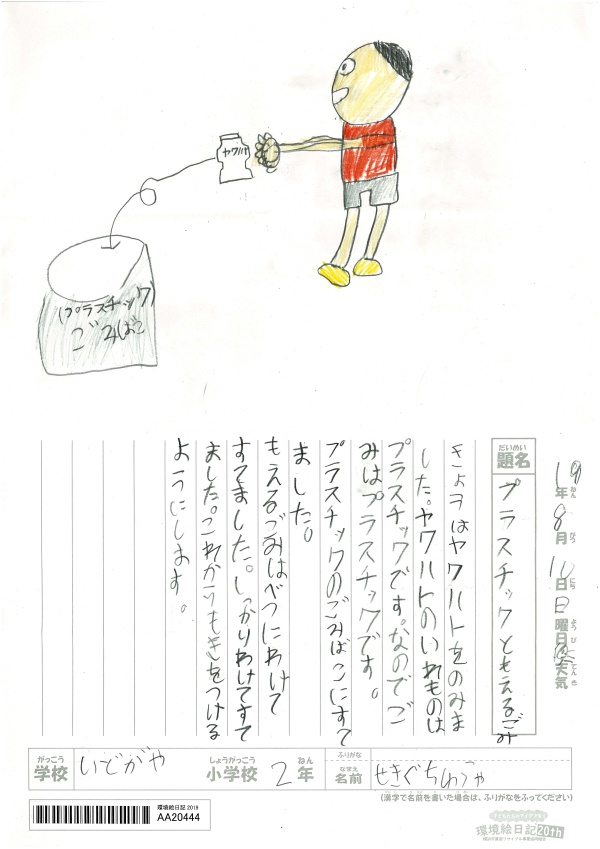 ヤクルト
(プラスチック)
ごみばこ
19年8月10日日曜日
天気
ねん
がつ
にち
ようび
てんき
だいめい
題名
プラスチックともえるごみ
きょうはヤクハトをのみま
した。ヤクハトのいれものは
プラスチックです。なのでご
みはプラスチックです。
プラスチックのごみばこにすて
ました。
もえるごみはべつにわけて
すてました。しっかりわけてすて
ました。これからもきをつける
ようにします。
がっこう
学校
いどがや
しょうがっこう
小学校
2
ねん
年
ふりがな
なまえ
名前
せきぐちゆうや
(漢字で名前を書いた場合は、ふりがなをふってください)
環境絵日記 2019
AA20444
環境絵日記20th